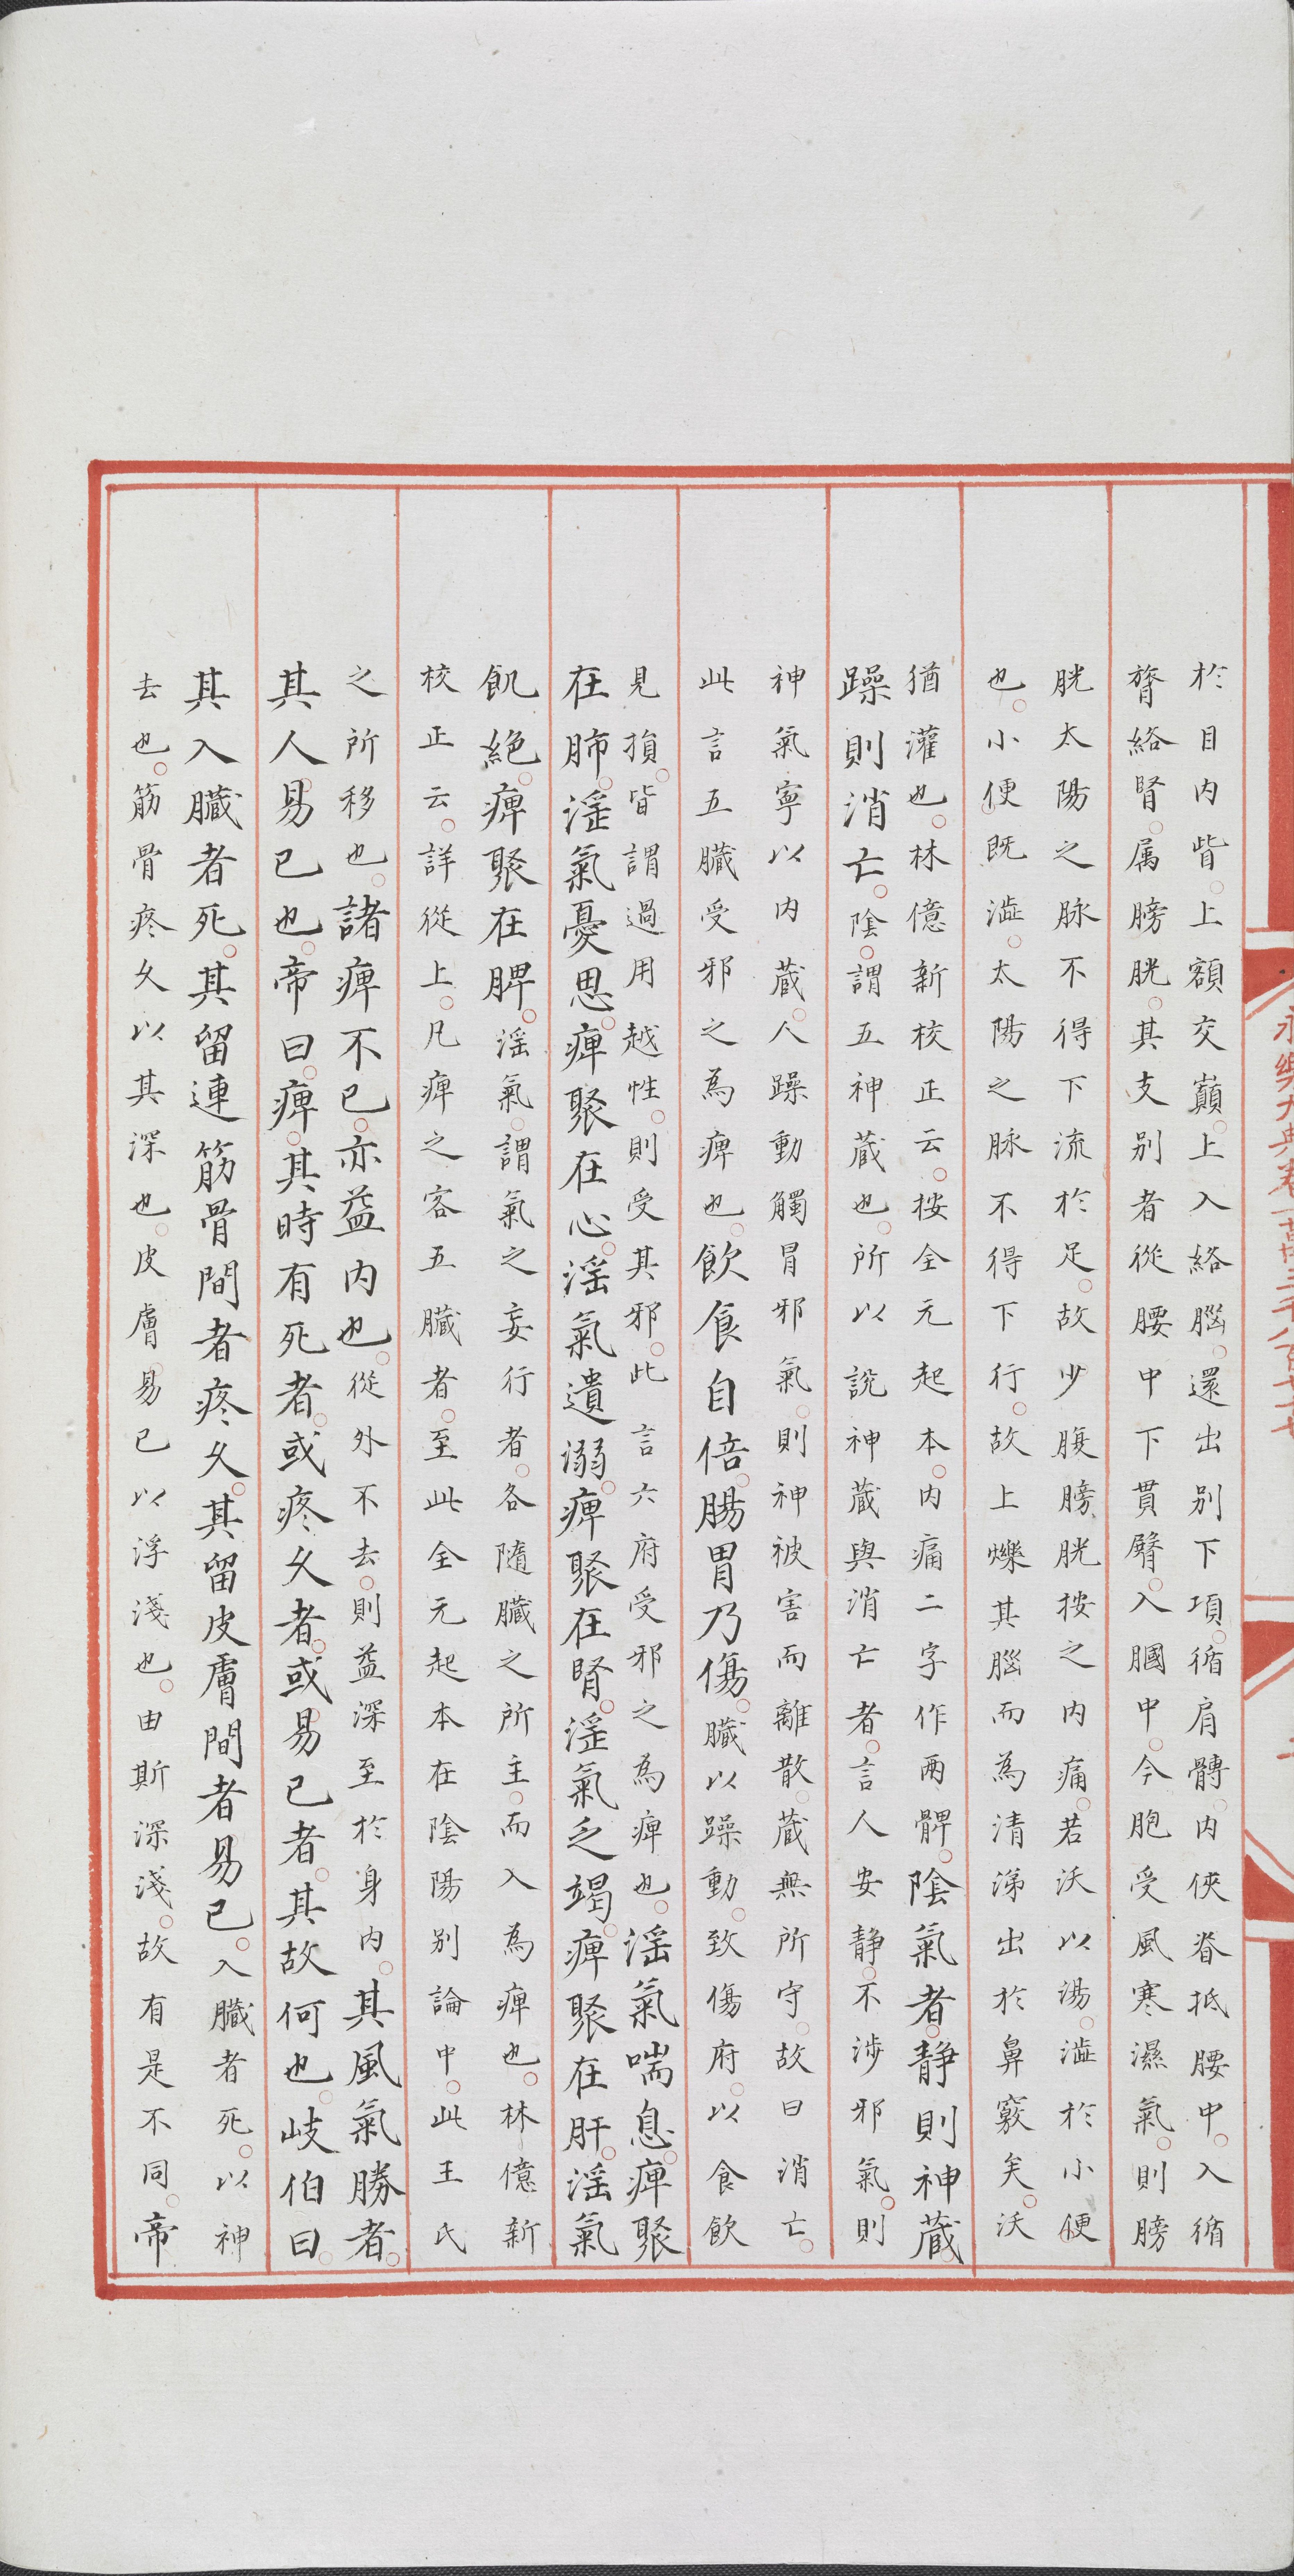 永樂大典卷一萬三千八百七十七
於目内眥。上額交巔。上入絡腦。還出別下項。循肩髆。内俠脊抵腰中。入循
膂絡腎。属膀胱。其支别者從腰中下貫臀。入膕中。今胞受風寒濕氣。則膀
胱太陽之脉不得下流於足。故少腹膀胱按之内痛。若沃以湯。澁於小便
也。小便既澁。太陽之脉不得下行。故上爍其腦而為清涕出於鼻竅矣。沃
猶灌也。林億新校正云。按全元起本。内痛二字作两髀。陰氣者。静則神蔵。
躁則消亡。陰。謂五神蔵也。所以說神蔵與消亡者。言人安静。不涉邪氣。則
神氣寧以内蔵。人躁動觸冒邪氣。則神被害而離散。蔵無所守。故曰消亡。
此言五臓受邪之為痺也。飲食自倍。腸胃乃傷。臓以躁動。致傷府。以食飲
見損。皆謂過用越性。則受其邪。此言六府受邪之為痺也。滛氣喘息。痺聚
在肺。滛氣憂思。痺聚在心。滛氣遺溺。痺聚在腎。滛氣乏竭。痺聚在肝。滛氣
飢絕。痺聚在脾。滛氣。謂氣之妄行者。各隨臓之所主。而入為痺也。林億新
校正云。詳從上。凡痺之客五臓者。至此全元起本在陰陽別論中。此王氏
之所移也。諸痺不已。亦益内也。從外不去。則益深至於身内。其風氣勝者。
其人易已也。帝曰。痺。其時有死者。或疼久者。或易已者。其故何也。岐伯曰。
其入臓者死。其留連筋骨間者疼久。其留皮膚間者易已。入臓者死。以神
去也。筋骨疼久以其深也。皮膚易已以浮淺也。由斯深淺。故有是不同。帝